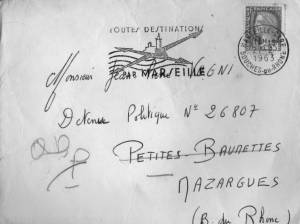 TOUTES DESTINATIONS
PAR MARSEILLE
1963
BOUCHES-DU-RHONE
Monsieur
Détenu Politique N° 26807
PETITES-BAUMETTES
MAZARGUES
(B. du Rhone)